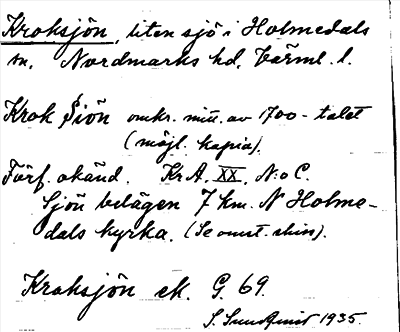 Kroksjön, liten sjö i Holmedals
sn, Nordmarks hd, Värml. l.
Krok Siön omkr. mitt. av 1700-talet
(möjl. kopia).
Förf. okänd. Kr A, XX, N:o C.
Sjön belägen 7 km. N Holme-
dals kyrka. (Se omst. skiss).
Kroksjön ek. G. 69.
S. Sundqvist 1935.